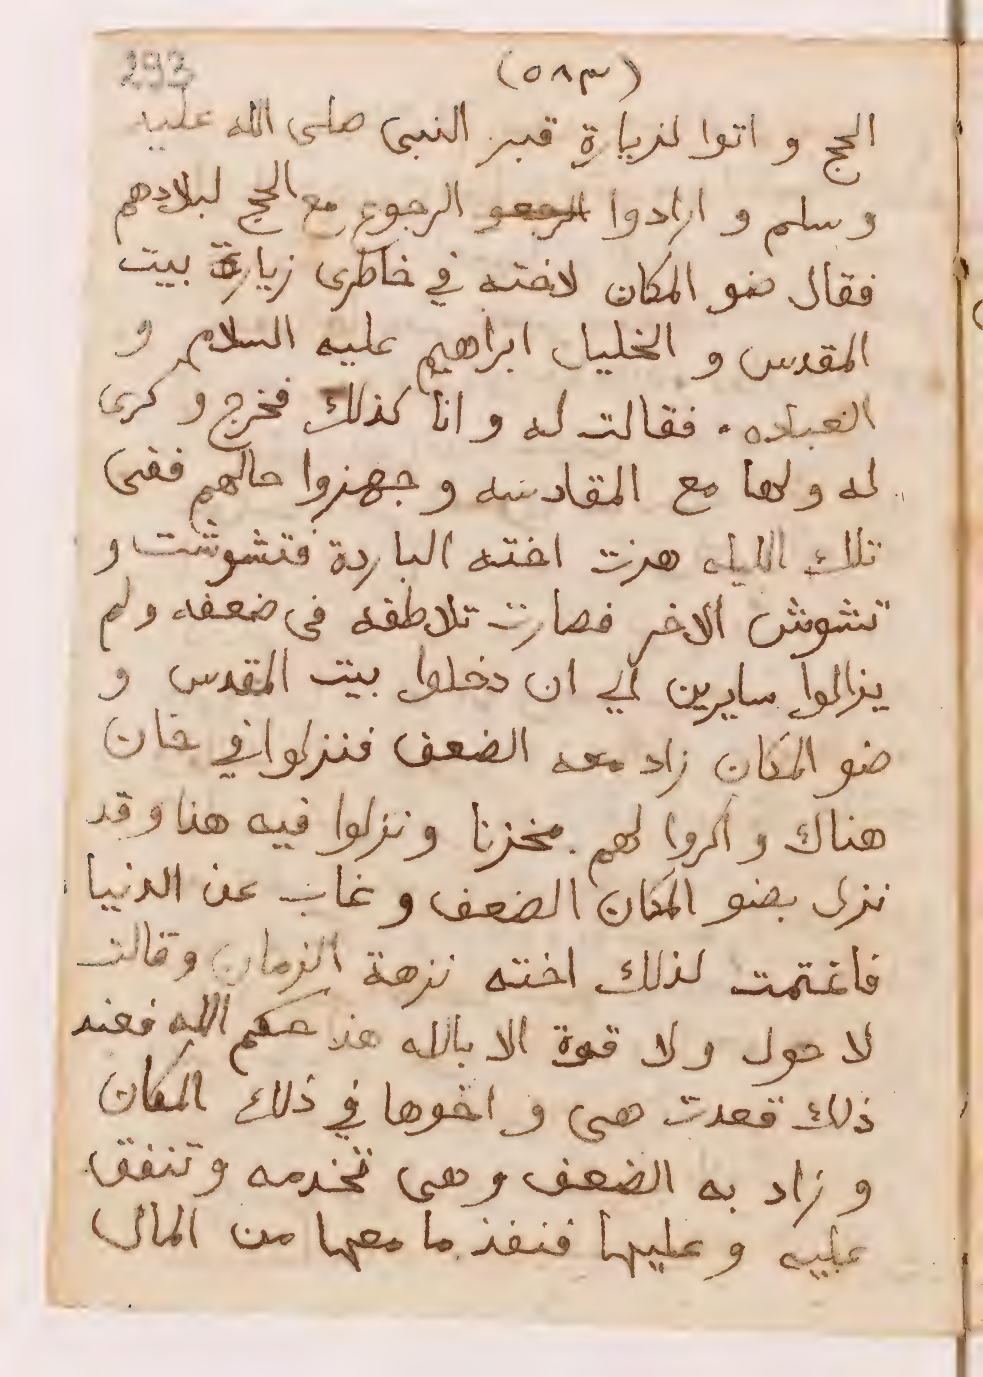 293
(٥٨٣)
الحج و اتوا لزيارة قبر النبى صلى الله عليه
و سلم و ارادوا الرجعو الرجوع مع الحج لبلادهم
فقال ضو المكان لاخته في خاطرى زيارة بيت
المقدس و الخليل ابراهيم عليه السلام و
العباده . فقالت له و انا كذلك فخرج و كرى
له ولها مع المقادسه و جهزوا حالهم ففى
تلك الليله هزت اخته الباردة فتشوشت و
تشوش الاخر فصارت تلاطفه فى ضعفه ولم
يزالوا سايرين الي ان دخلوا بيت المقدس و
ضو المكان زاد معه الضعف فنزلوا في خان
هناك و اكروا لهم مخزنا و نزلوا فيه هنا وقد
نزل بضو المكان الضعف و غاب عن الدنيا
فاغتمت لذلك اخته نزهة الزمان وقالت
لا حول ولا قوة الا بالله هذا حكم الله فعند
ذلك قعدت هى و اخوها في ذلك المكان
و زاد به الضعف و هى تخدمه و تنفق
عليه و عليها فنفذ ما معها من المال